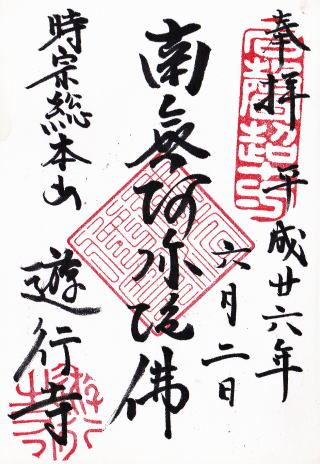 奉拝 平成廿六年
六月二日
南無阿弥陀佛
時宗総本山
遊行寺